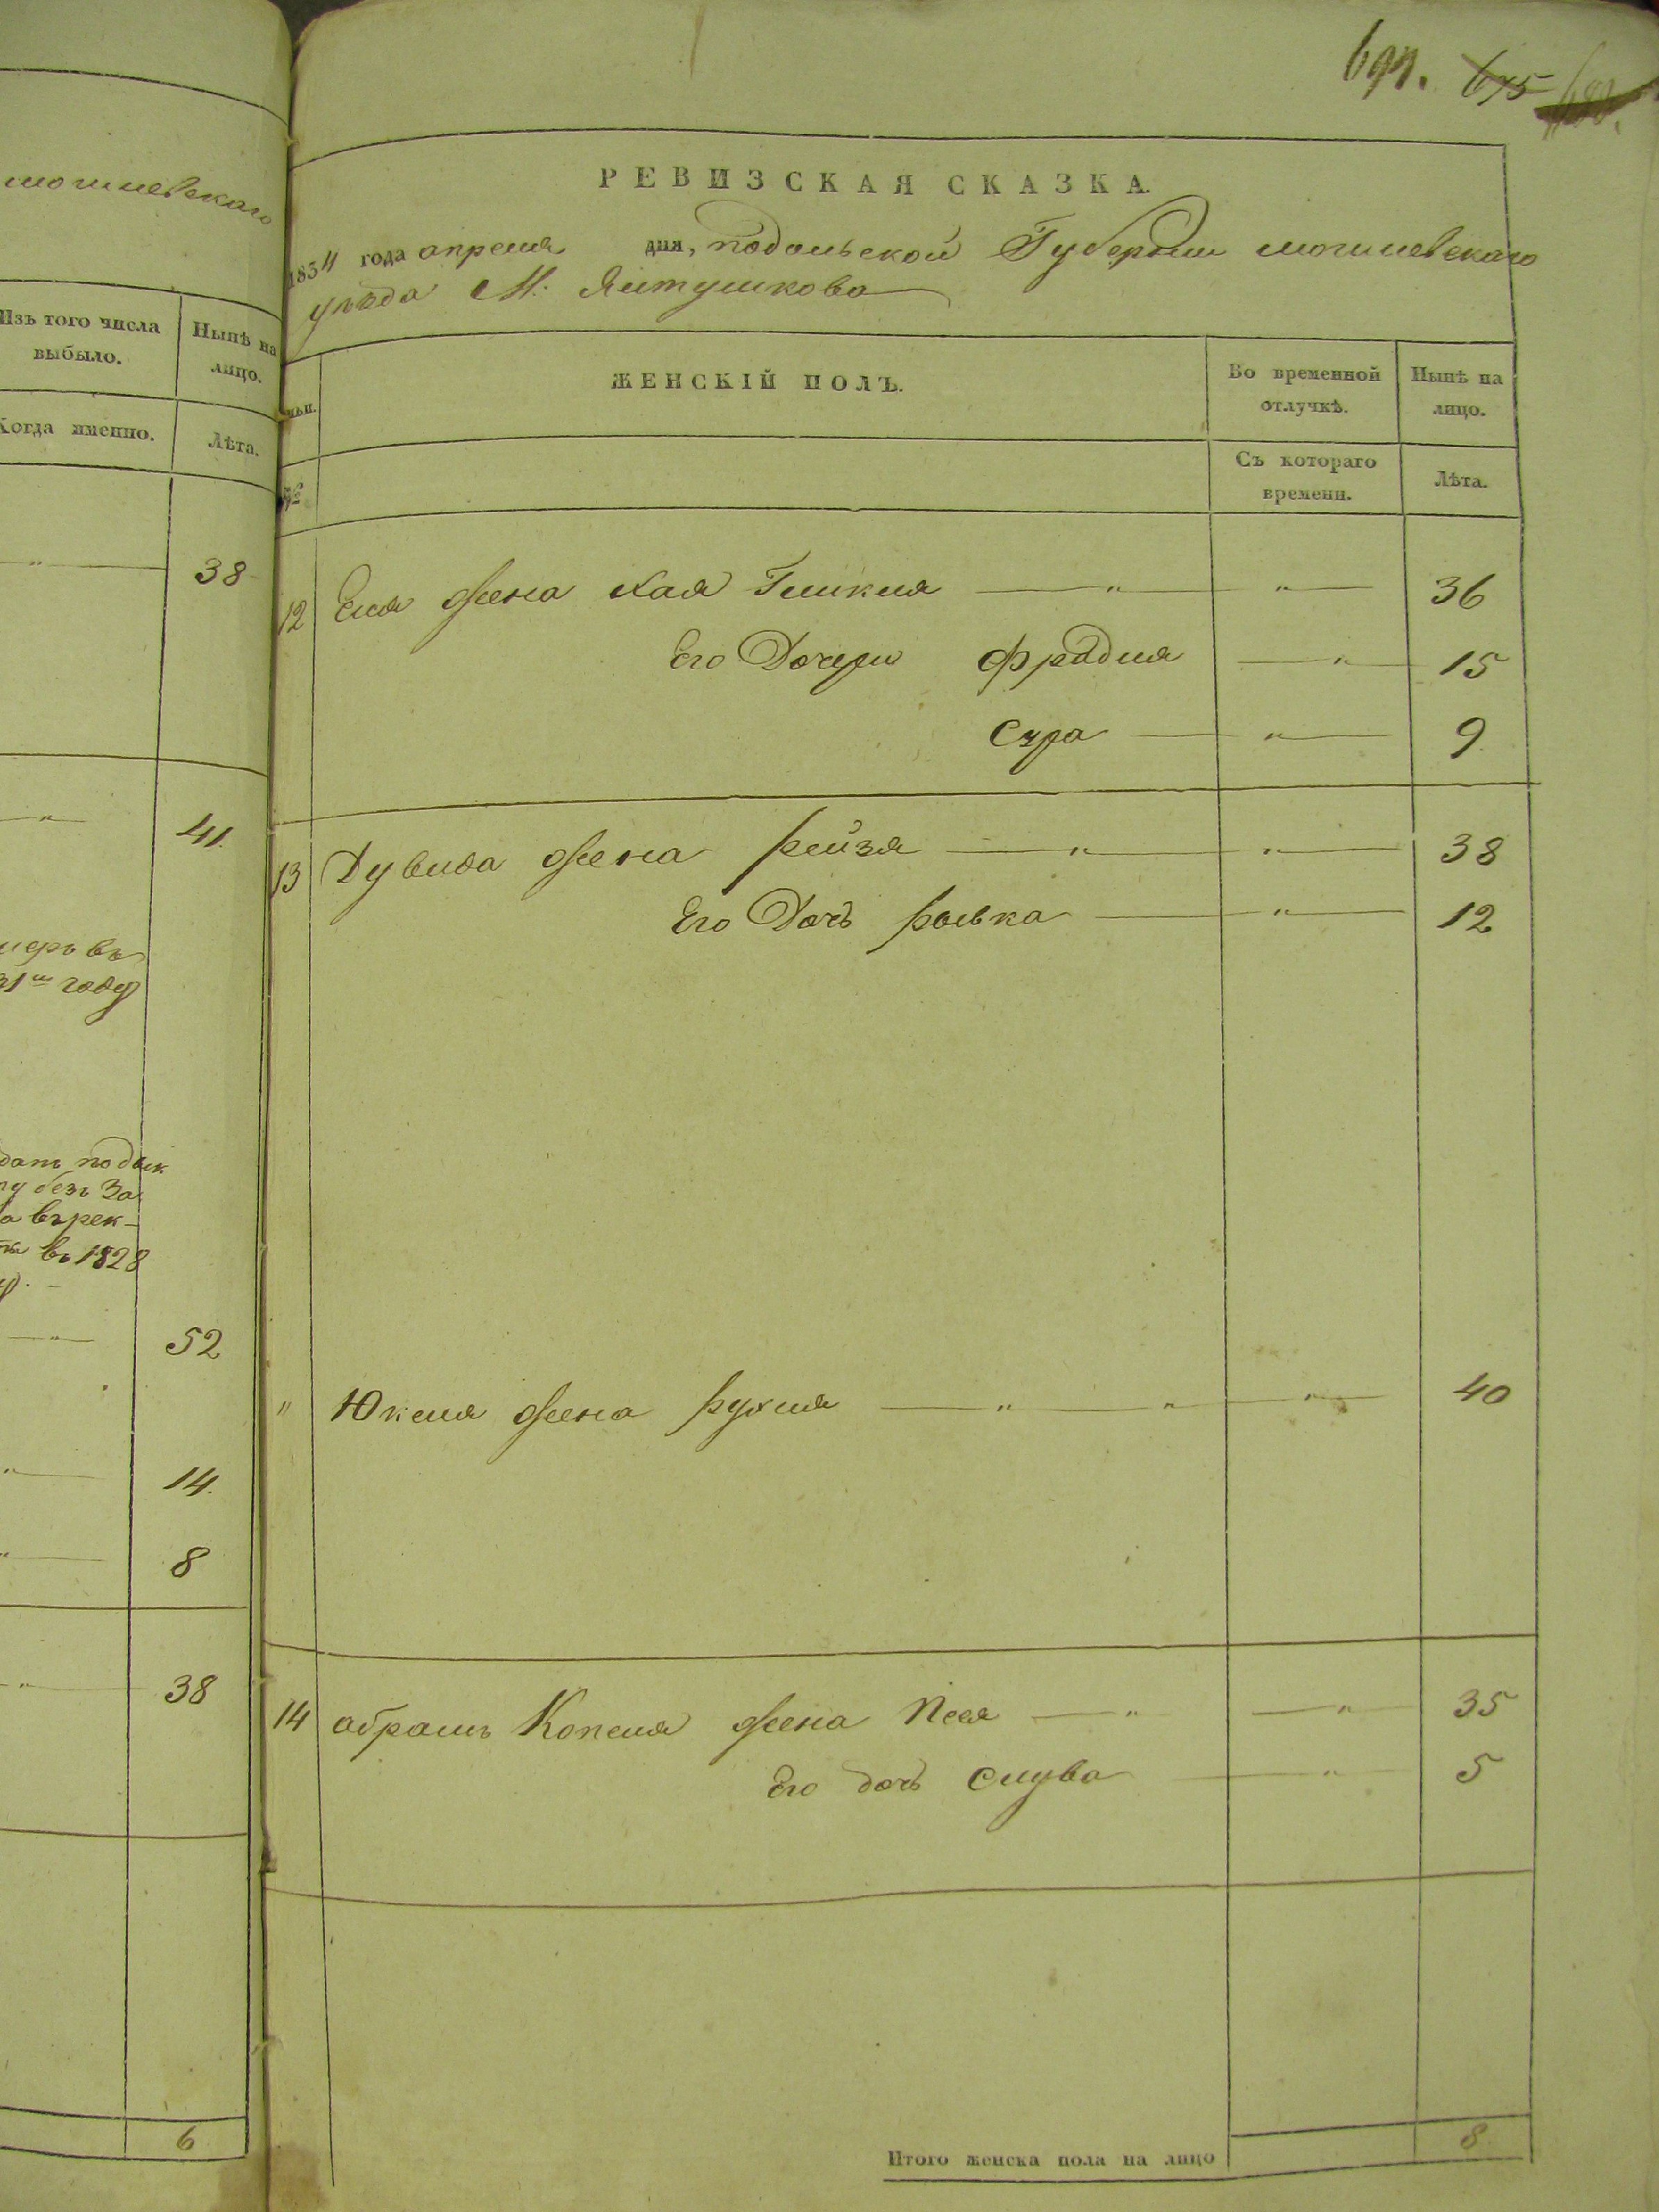 могилевскаго
Изъ того числа выбыло.
Нынѣ на лицо.
Когда именно.
Лѣта.
38
41
въ
году
въ 1828
52
14
8
38
6
697. 675
РЕВИЗСКАЯ СКАЗКА.
1834 года апреля дня, подольской Губернии могилевскаго
уезда М. Ялтушкова
ЖЕНСКІЙ ПОЛЪ.
Во временной отлучкѣ.
Нынѣ на лицо.
Съ котораго времени.
Лѣта.
12 Еля жена хая Гликля — " — " — 36
Его Дочери фрадля — " — 15
Сура — " — 9
13 Дувида жена рейзя — " — " — 38
Его Дочъ рывка — " — 12
" Юкеля жена рухля — " — " — " — 40
14 абрамъ Копеля жена Песя — " — " — 35
Его дочъ Слува — " — 5
Итого женска пола на лицо 8